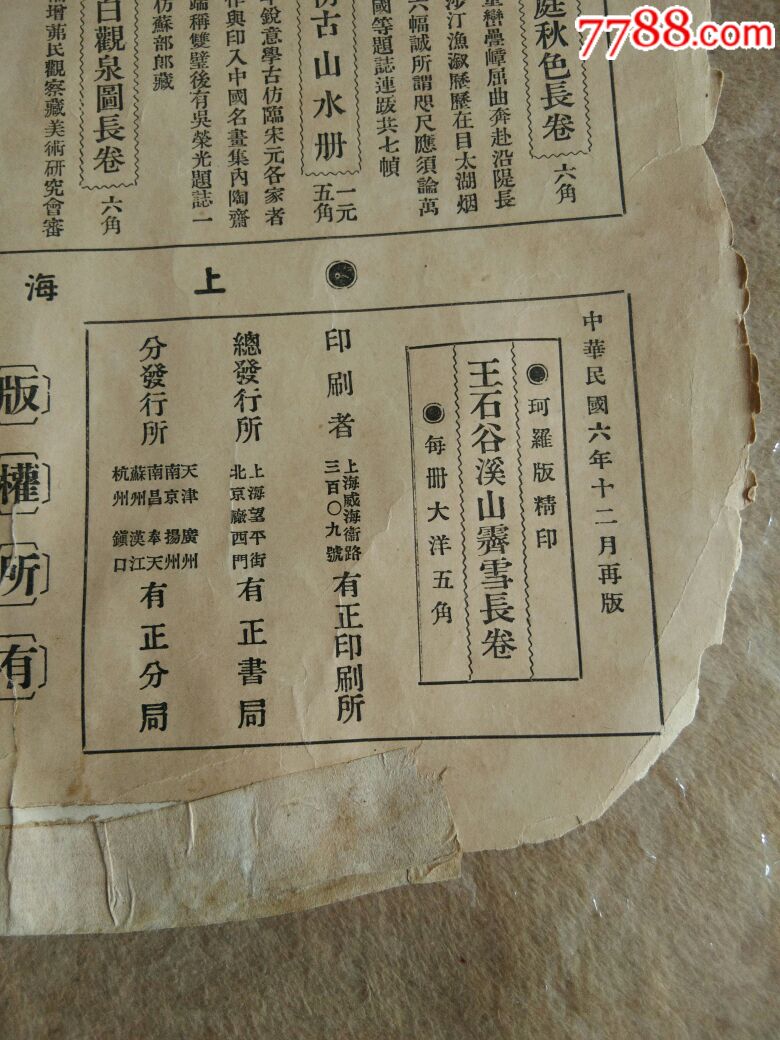 7788.com
庭秋色長卷
六角
重巒疊嶂屈曲奔赴沿隄長
涉汀漁漵歷歷在目太湖烟
六幅誠所謂咫尺應須論萬
國等題誌連跋共七幀
仿古山水册
一元
五角
年銳意學古仿臨宋元各家者
作與印入中國名畫集內陶齋
端稱雙璧後有吳榮光題誌一
仿蘇部郎藏
白觀泉圖長卷
六角
增茀民觀察藏美術研究會審
上海
中華民國六年十二月再版
珂羅版精印
王石谷溪山霽雪長卷
每册大洋五角
印刷者
上海威海衛路
三百〇九號
有正印刷所
總發行所
上海望平街
北京廠西門
有正書局
分發行所
天津 廣州
南京 揚州
南昌 奉天
蘇州 漢江
杭州 鎮口
有正分局
版權所有